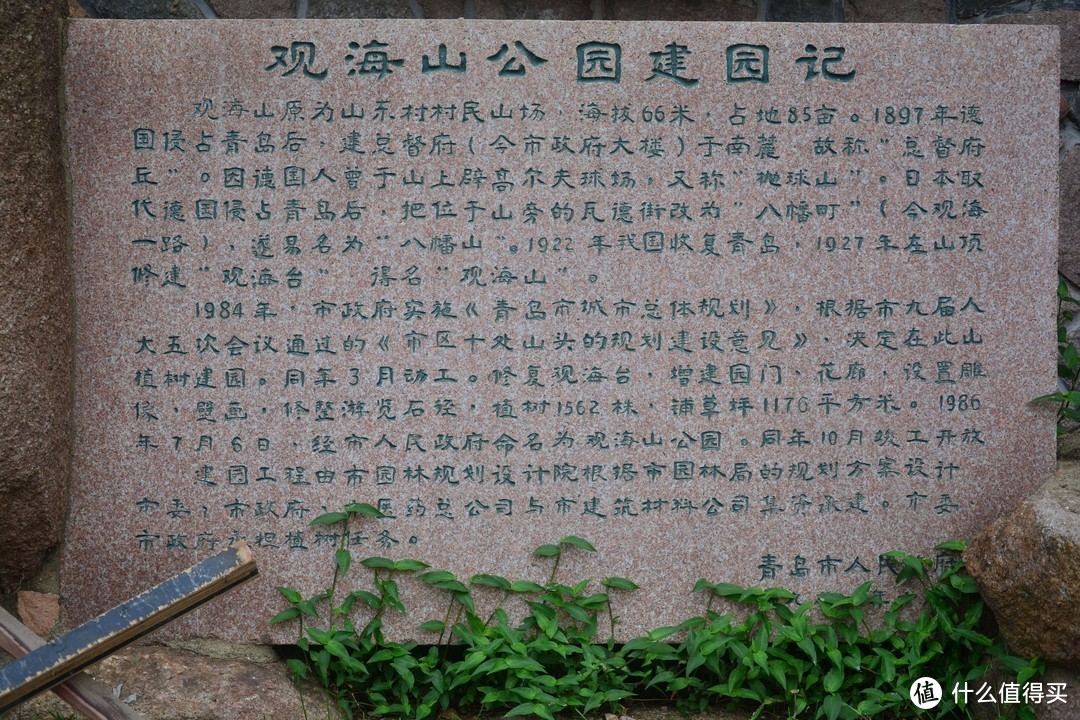 观海山公园建园记
观海山原为山东村村民山场,海拔66米,占地85亩。1897年德
国侵占青岛后,建总督府(今市政府大楼)于南麓 故称“总督府
丘”。因德国人曾于山上辟高尔夫球场,又称“抛球山”。日本取
代德国侵占青岛后,把位于山旁的瓦德街改为“八幡町”(今观海
一路),遂易名为“八幡山”。1922年我国收复青岛,1927年在山顶
修建“观海台” 得名“观海山”。
1984年,市政府实施《青岛市城市总体规划》,根据市九届人
大五次会议通过的《市区十处山头的规划建设意见》,决定在此山
植树建园。同年3月动工。修复观海台,增建园门、花廊,设置雕
像,壁画,修整游览石径,植树1562株,铺草坪1176平方米。1986
年7月6日,经市人民政府命名为观海山公园。同年10月竣工开放
建园工程由市园林规划设计院根据市园林局的规划方案设计
市委,市政府 医药总公司与市建筑材料公司集资承建。市委、
市政府承担植树任务。
青岛市人民
什么值得买